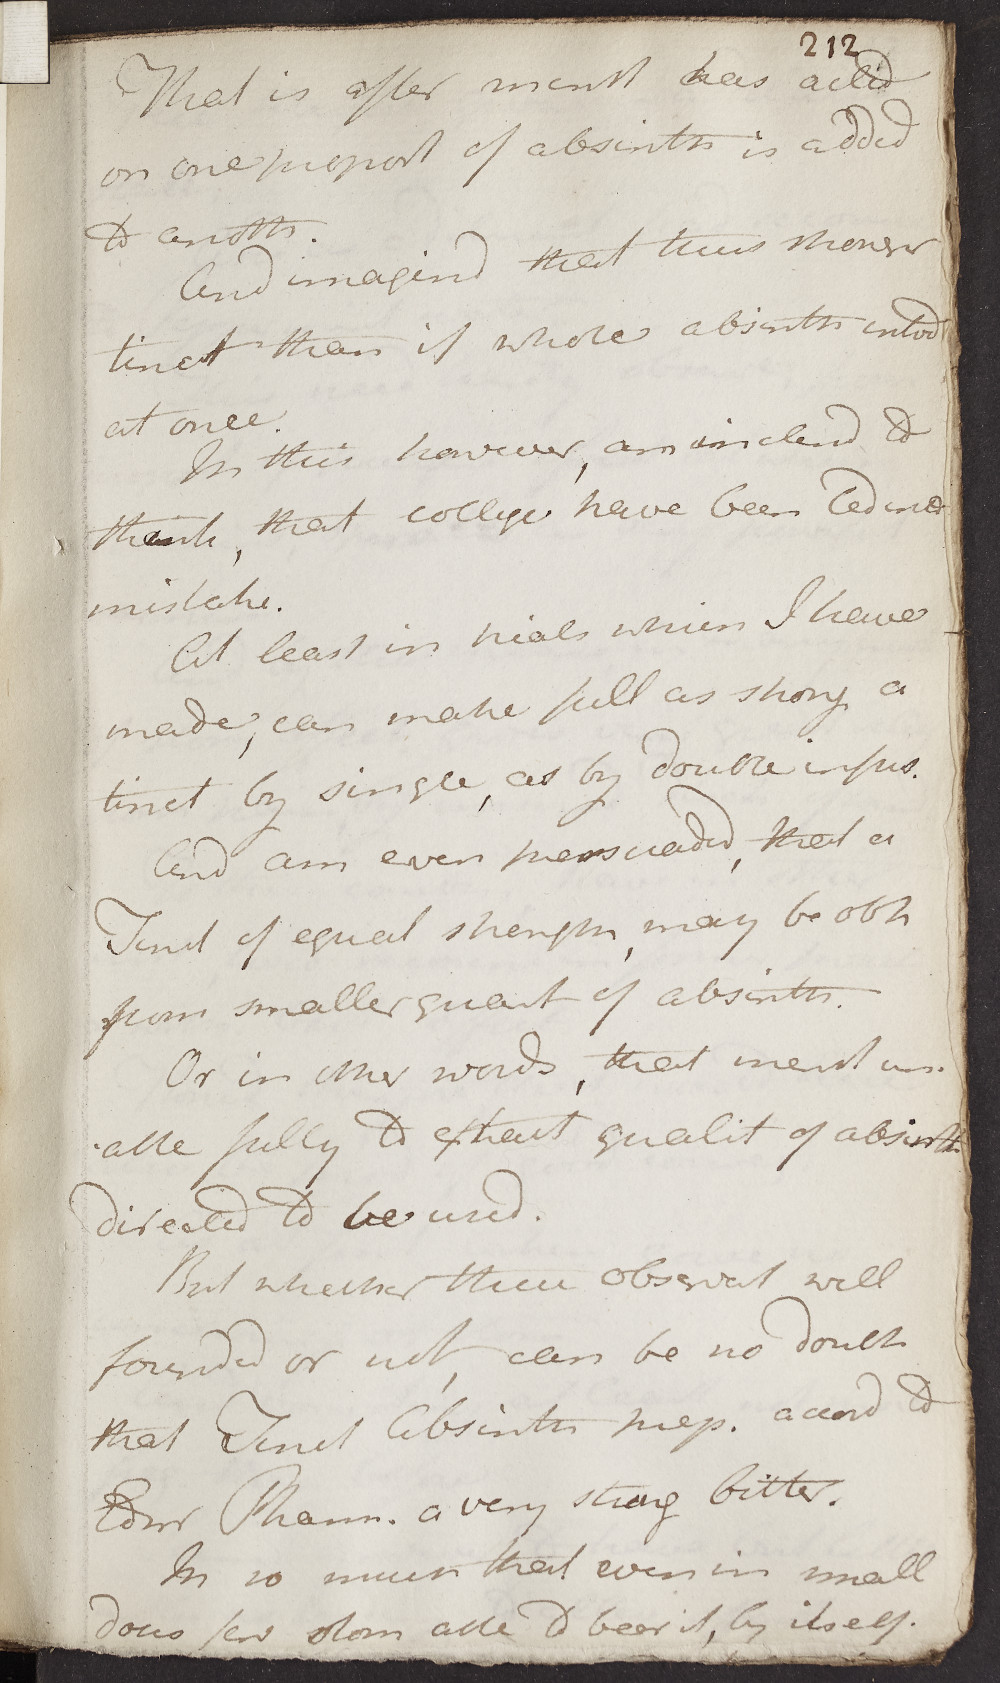 212
That is after menst has acted
on one proport of absinth is added
to anoth.
And imagind that thus stronger
tinct than if whole absinth introd
at once.
In this however, am inclend to
think, that college have been led into
mistake.
At least in trials which I have
made, can make full as strong a
tinct by single, as by double infus.
And am even persuaded, that a
Tinct of equal strength, may be obt
from smaller quant of absinth.
Or in other words, that menst un-
-able fully to exhaust qualit of absinth
directed to be used.
But whether these observat well
founded or not, can be no doubt
that Tinct Absinth prep. accord to
Edinr Pharm. a very strong bitter.
In so much that even in small
doses few stom able to bear it, by itself.